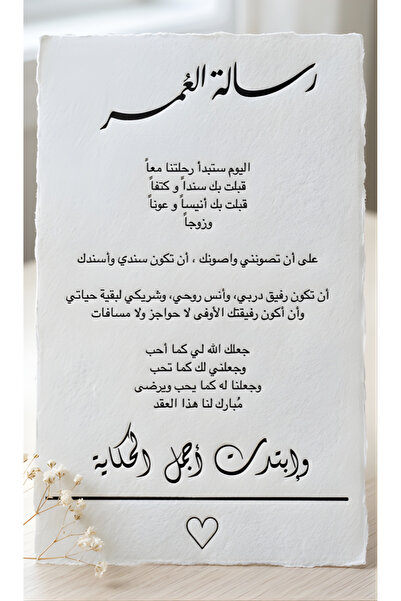 رسالة العُمر
اليوم ستبدأ رحلتنا معاً
قبلت بك سنداً و كتفاً
قبلت بك أنيساً و عوناً
وزوجاً
على أن تصونني واصونك ، أن تكون سندي وأسندك
أن تكون رفيق دربي، وأنس روحي، وشريكي لبقية حياتي
وأن أكون رفيقتك الأوفى لا حواجز ولا مسافات
جعلك الله لي كما أحب
وجعلني لك كما تحب
وجعلنا له كما يحب ويرضى
مُبارك لنا هذا العقد
وإبتدت أجمل الحكاية